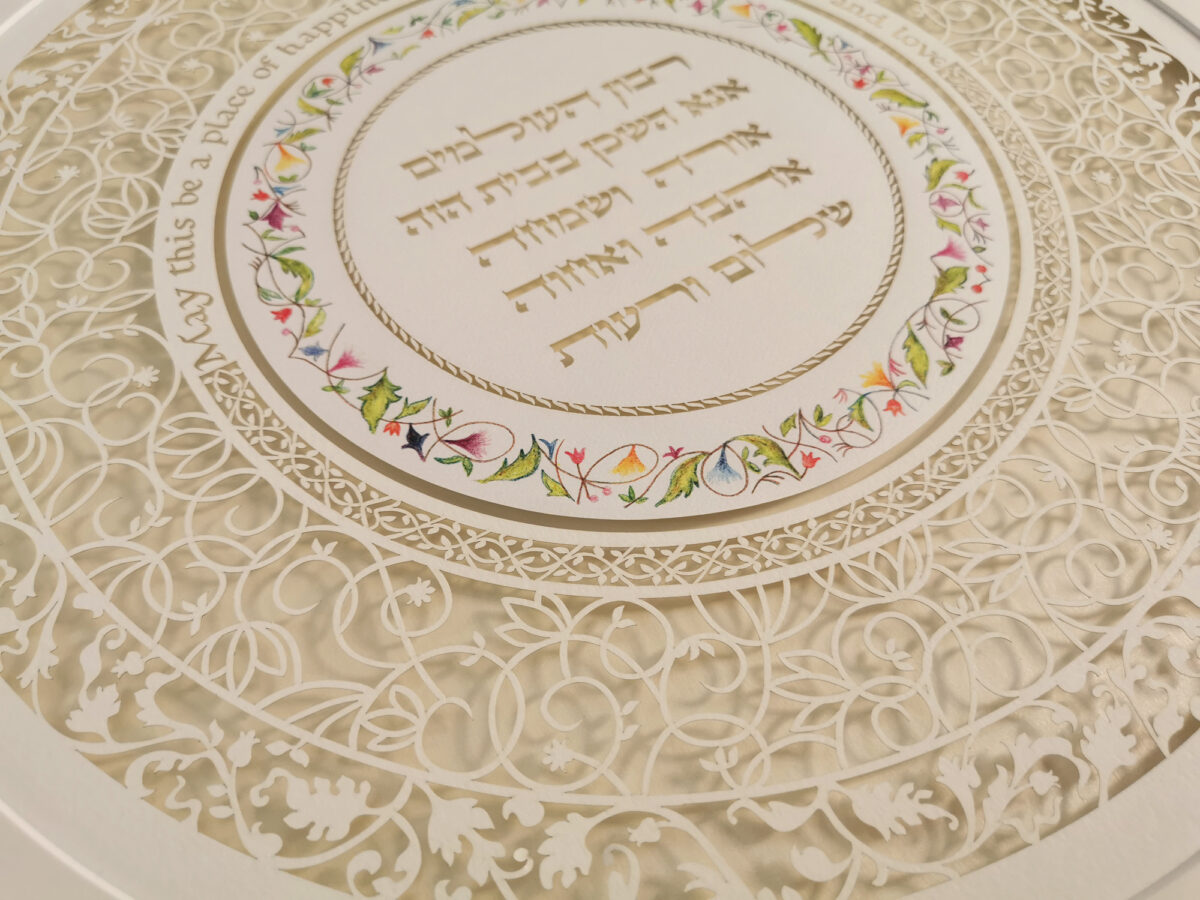 May this be a place of
and love
רבון העולמים
אנא השכן בבית הזה
אורה ושמחה
אהבה ואחוה
שלום ורעות